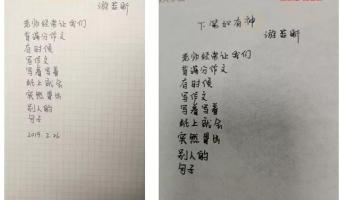 游若昕
老师经常让我们
背满分作文
在时候
写作文
写着写着
纸上就会
突然冒出
别人的
句子
2019.2.26
下笔如有神
游若昕
老师经常让我们
背满分作文
在时候
写作文
写着写着
纸上就会
突然冒出
别人的
句子